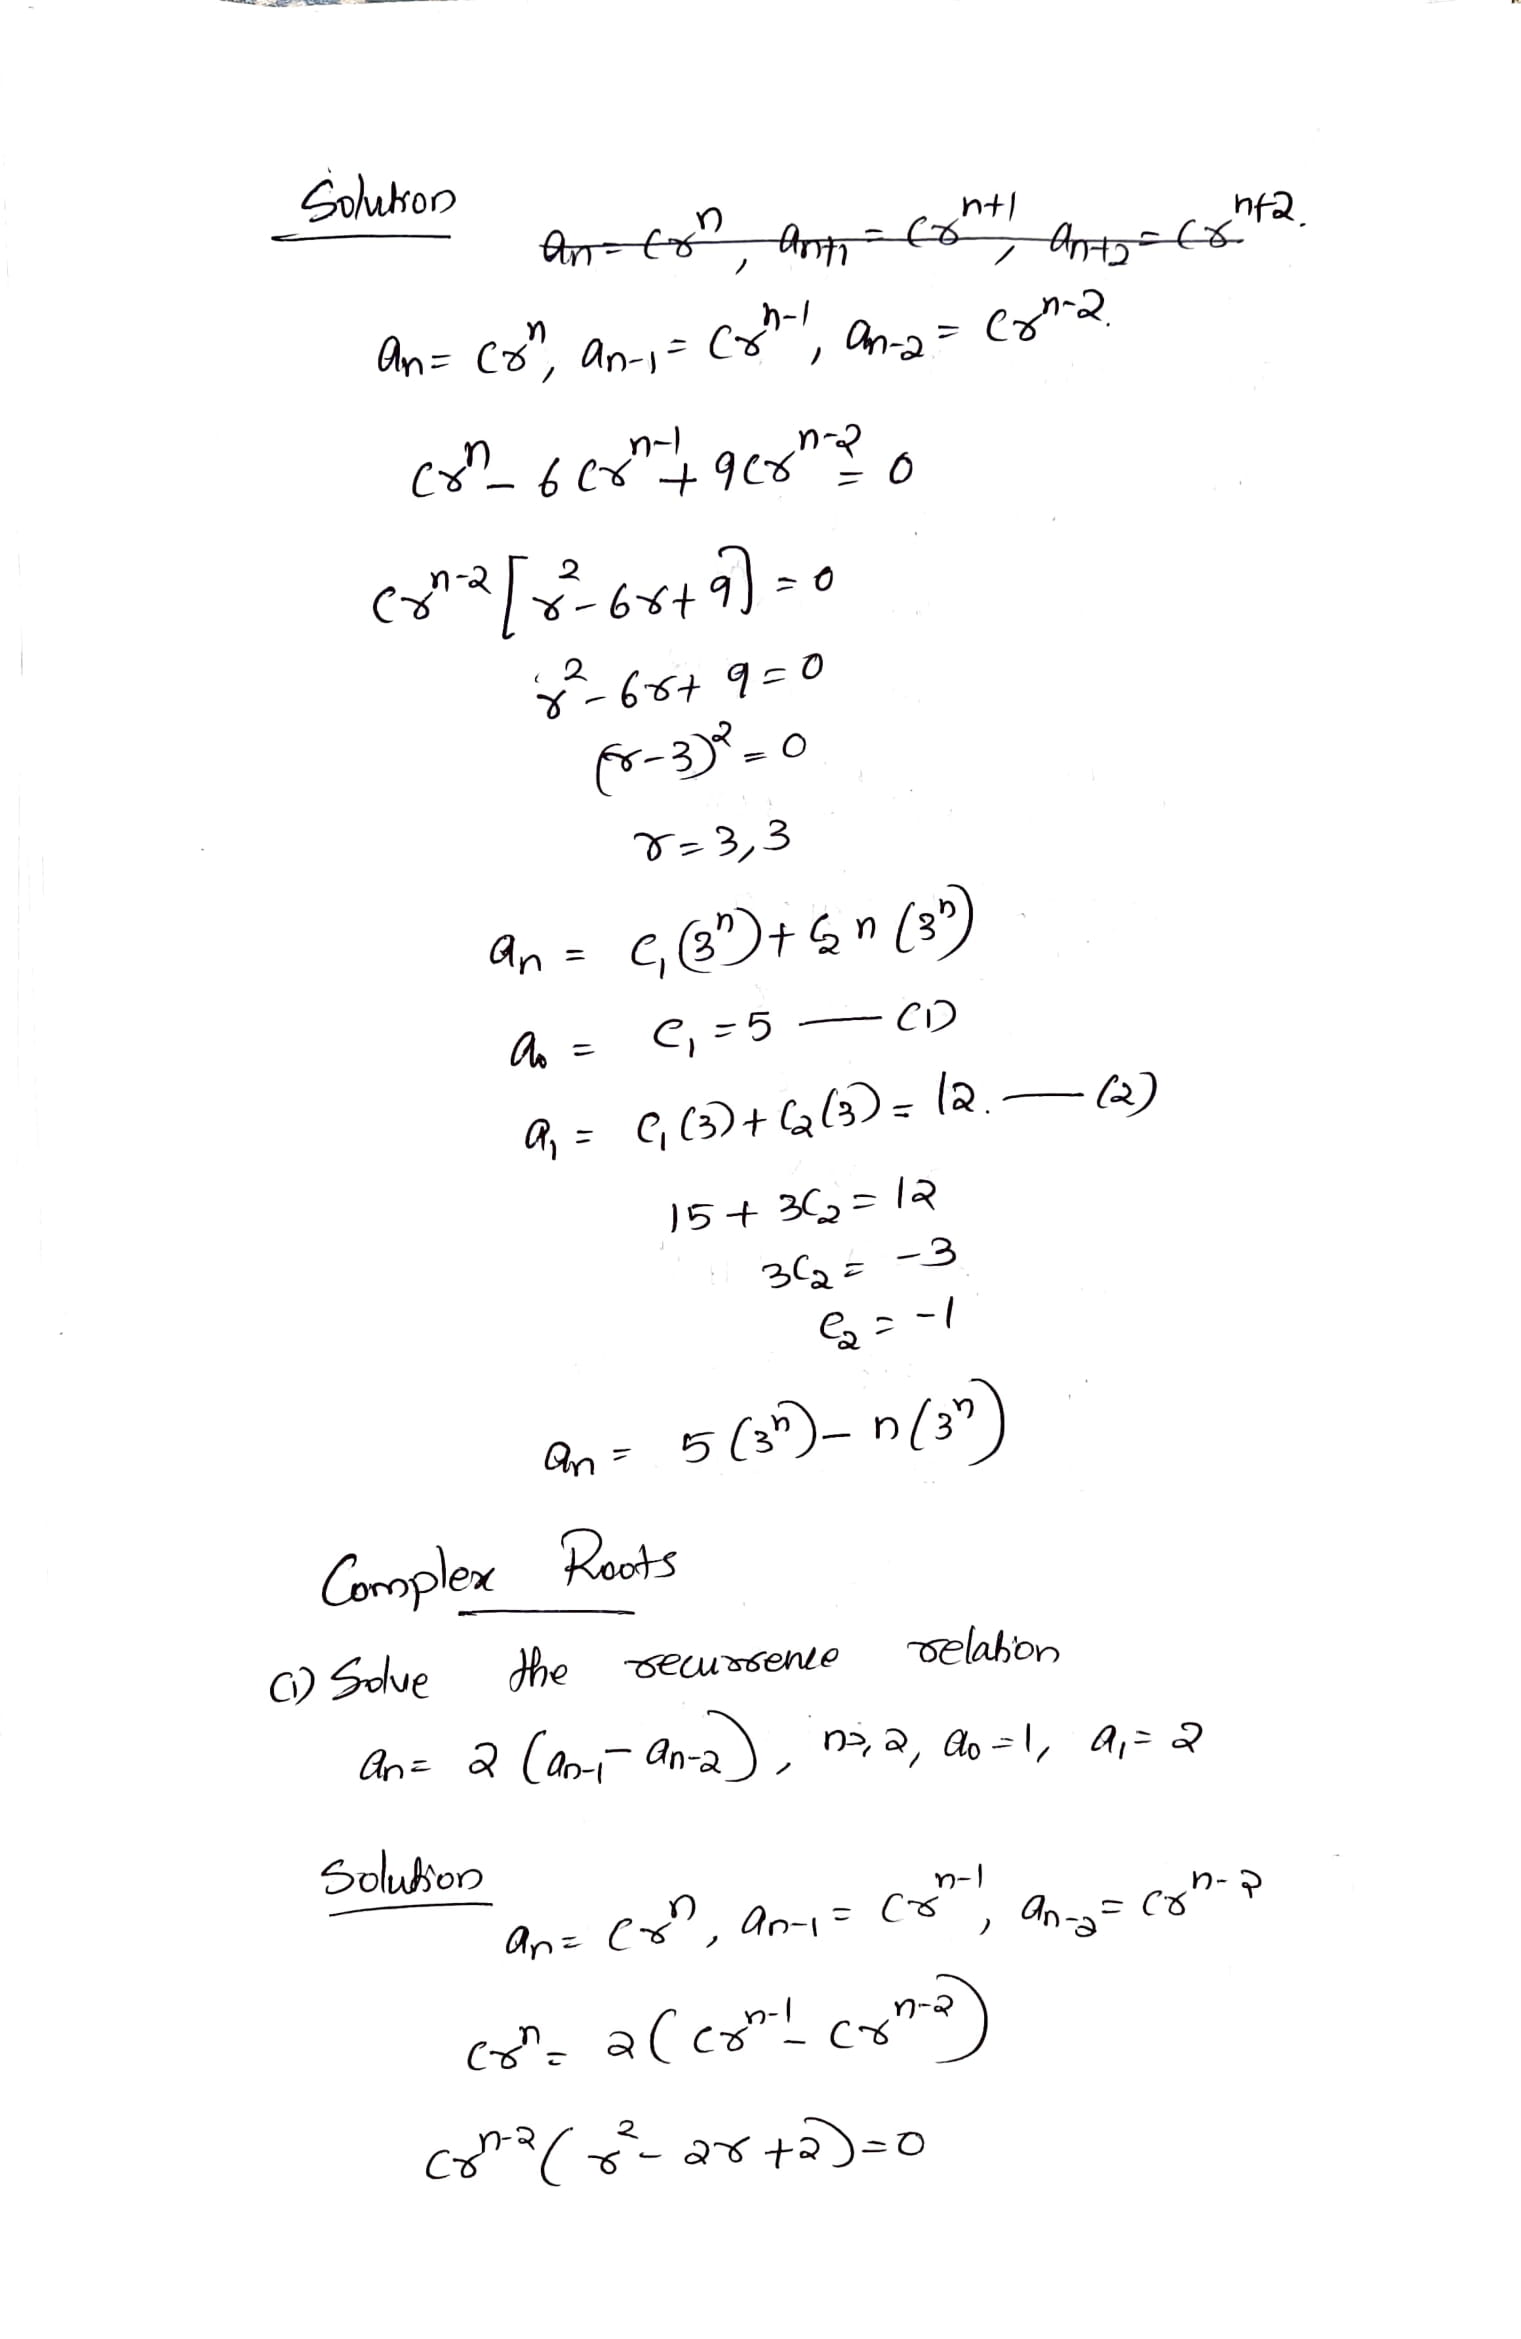 Solution
an = crⁿ, an+1 = crⁿ⁺¹, an+2 = crⁿ⁺².
an = crⁿ, an-1 = crⁿ⁻¹, an-2 = crⁿ⁻².
crⁿ - 6crⁿ⁻¹ + 9crⁿ⁻² = 0
crⁿ⁻² [r² - 6r + 9] = 0
r² - 6r + 9 = 0
(r-3)² = 0
r = 3, 3
an = C₁(3ⁿ) + C₂ n (3ⁿ)
a₀ = C₁ = 5 — (1)
a₁ = C₁(3) + C₂(3) = 12. — (2)
15 + 3C₂ = 12
3C₂ = -3
C₂ = -1
an = 5(3ⁿ) - n(3ⁿ)
Complex Roots
(1) Solve the recurrence relation
an = 2(an-1 - an-2), n≥2, a₀ = 1, a₁ = 2
Solution
an = crⁿ, an-1 = crⁿ⁻¹, an-2 = crⁿ⁻²
crⁿ = 2(crⁿ⁻¹ - crⁿ⁻²)
crⁿ⁻² (r² - 2r + 2) = 0